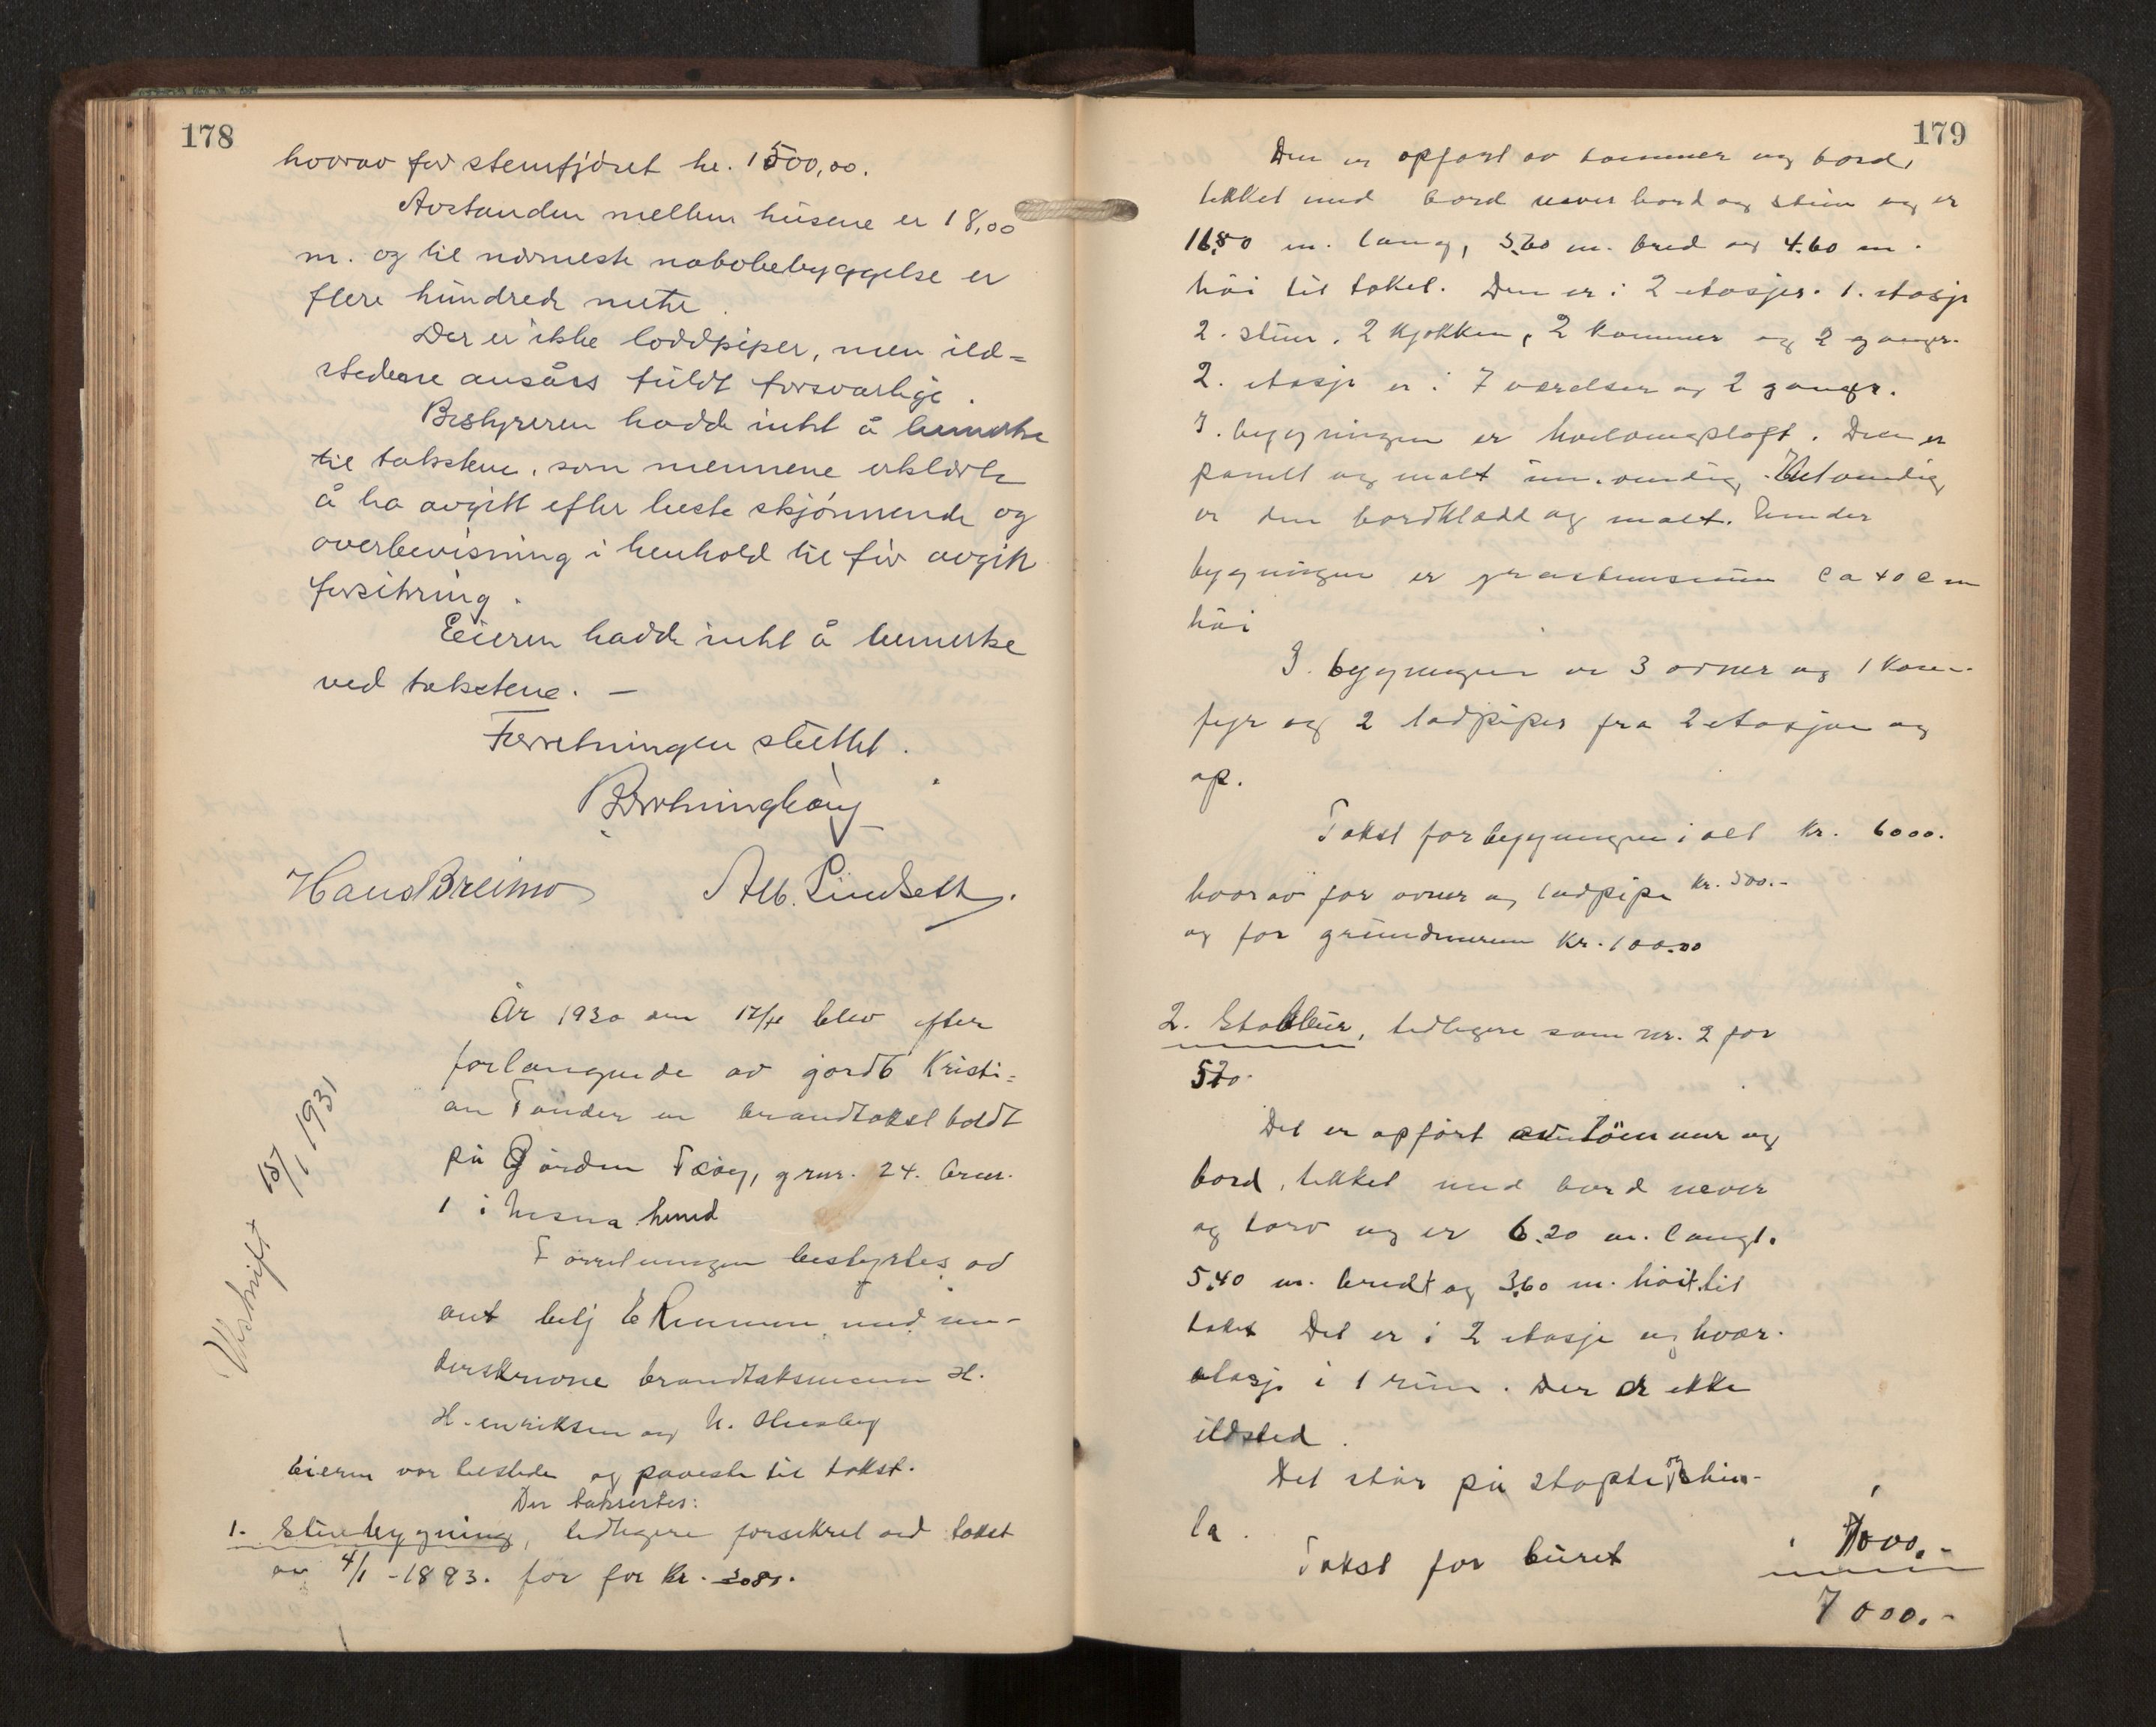 178
hvorav for stenfjöset kr. 1500,00.
Avstanden mellem husene er 18,00
m. og til nærmeste nabobebyggelse er
flere hundrede metr.
Der er ikke loddpiper, men ild=
stedene ansåes fuldt forsvarlige.
Bestyreren hadde intet å bemerke
til takstene, som mennene erklærte
å ha avgitt efter beste skjönnende og
overbevisning i henhold til för avgitt
forsikring.
Eieren hadde intet å bemerke
ved takstene. —
Forretningen sluttet.
Hans Breimo Alb. Lindseth.
År 1930 den 17/4 blev efter
forlangende av gårdb Kristi=
an Tönder en brandtakst holdt
på Gården grnr. 24. brnr.
1 i Nesna herred
Forretningen bestyrtes ad
aut belj E med un-
derskrevne brandtaksmenn H.
H-enriksen og N. Husby
Eieren var tilstede og paaviste til takst.
Der taksertes:
1. Stuebygning, tidligere forsikret ved takst
av 4/1 -1893. for for kr. 3080.
15/1 1931
179
Den er opført av tømmer og bord,
tekket med bord never bord og sten og er
16.80 m. lang, 5.60 m. bred og 4.60 m.
höi til taket. Den er i 2 etasjer. 1. etasje
2. stuer, 2 kjøkken, 2 kammer og 2 ganger.
2. etasje er i 7 værelser og 2 ganger.
I. bygningen er hvelvingsloft. Den er
panelt og malt inn.vendig. Utvendig
er den bordklædd og malt. Under
bygningen er gråstensmur ca 40 cm
höi
I. bygningen er 3 ovner og 1 kom-
fyr og 2 lodpiper fra 2 etasjen og
op.
Takst for bygningen i alt kr. 6000.
hvorav for ovner og lodpipe kr. 500.-
og for grundmuren kr. 100.00
2. Stabbur, tidligere som nr. 2 for
520.
Det er opfört av tömmer og
bord, tekket med bord never
og torv og er 6.20 m. langt.
5.40 m. bredt og 3.60 m. höit til
taket Det er i 2 etasje og hver
etasje i 1 rum. Der er ikke
ildsted.
Det står på stopte
la.
Takst for buret 1000.-
7000.-